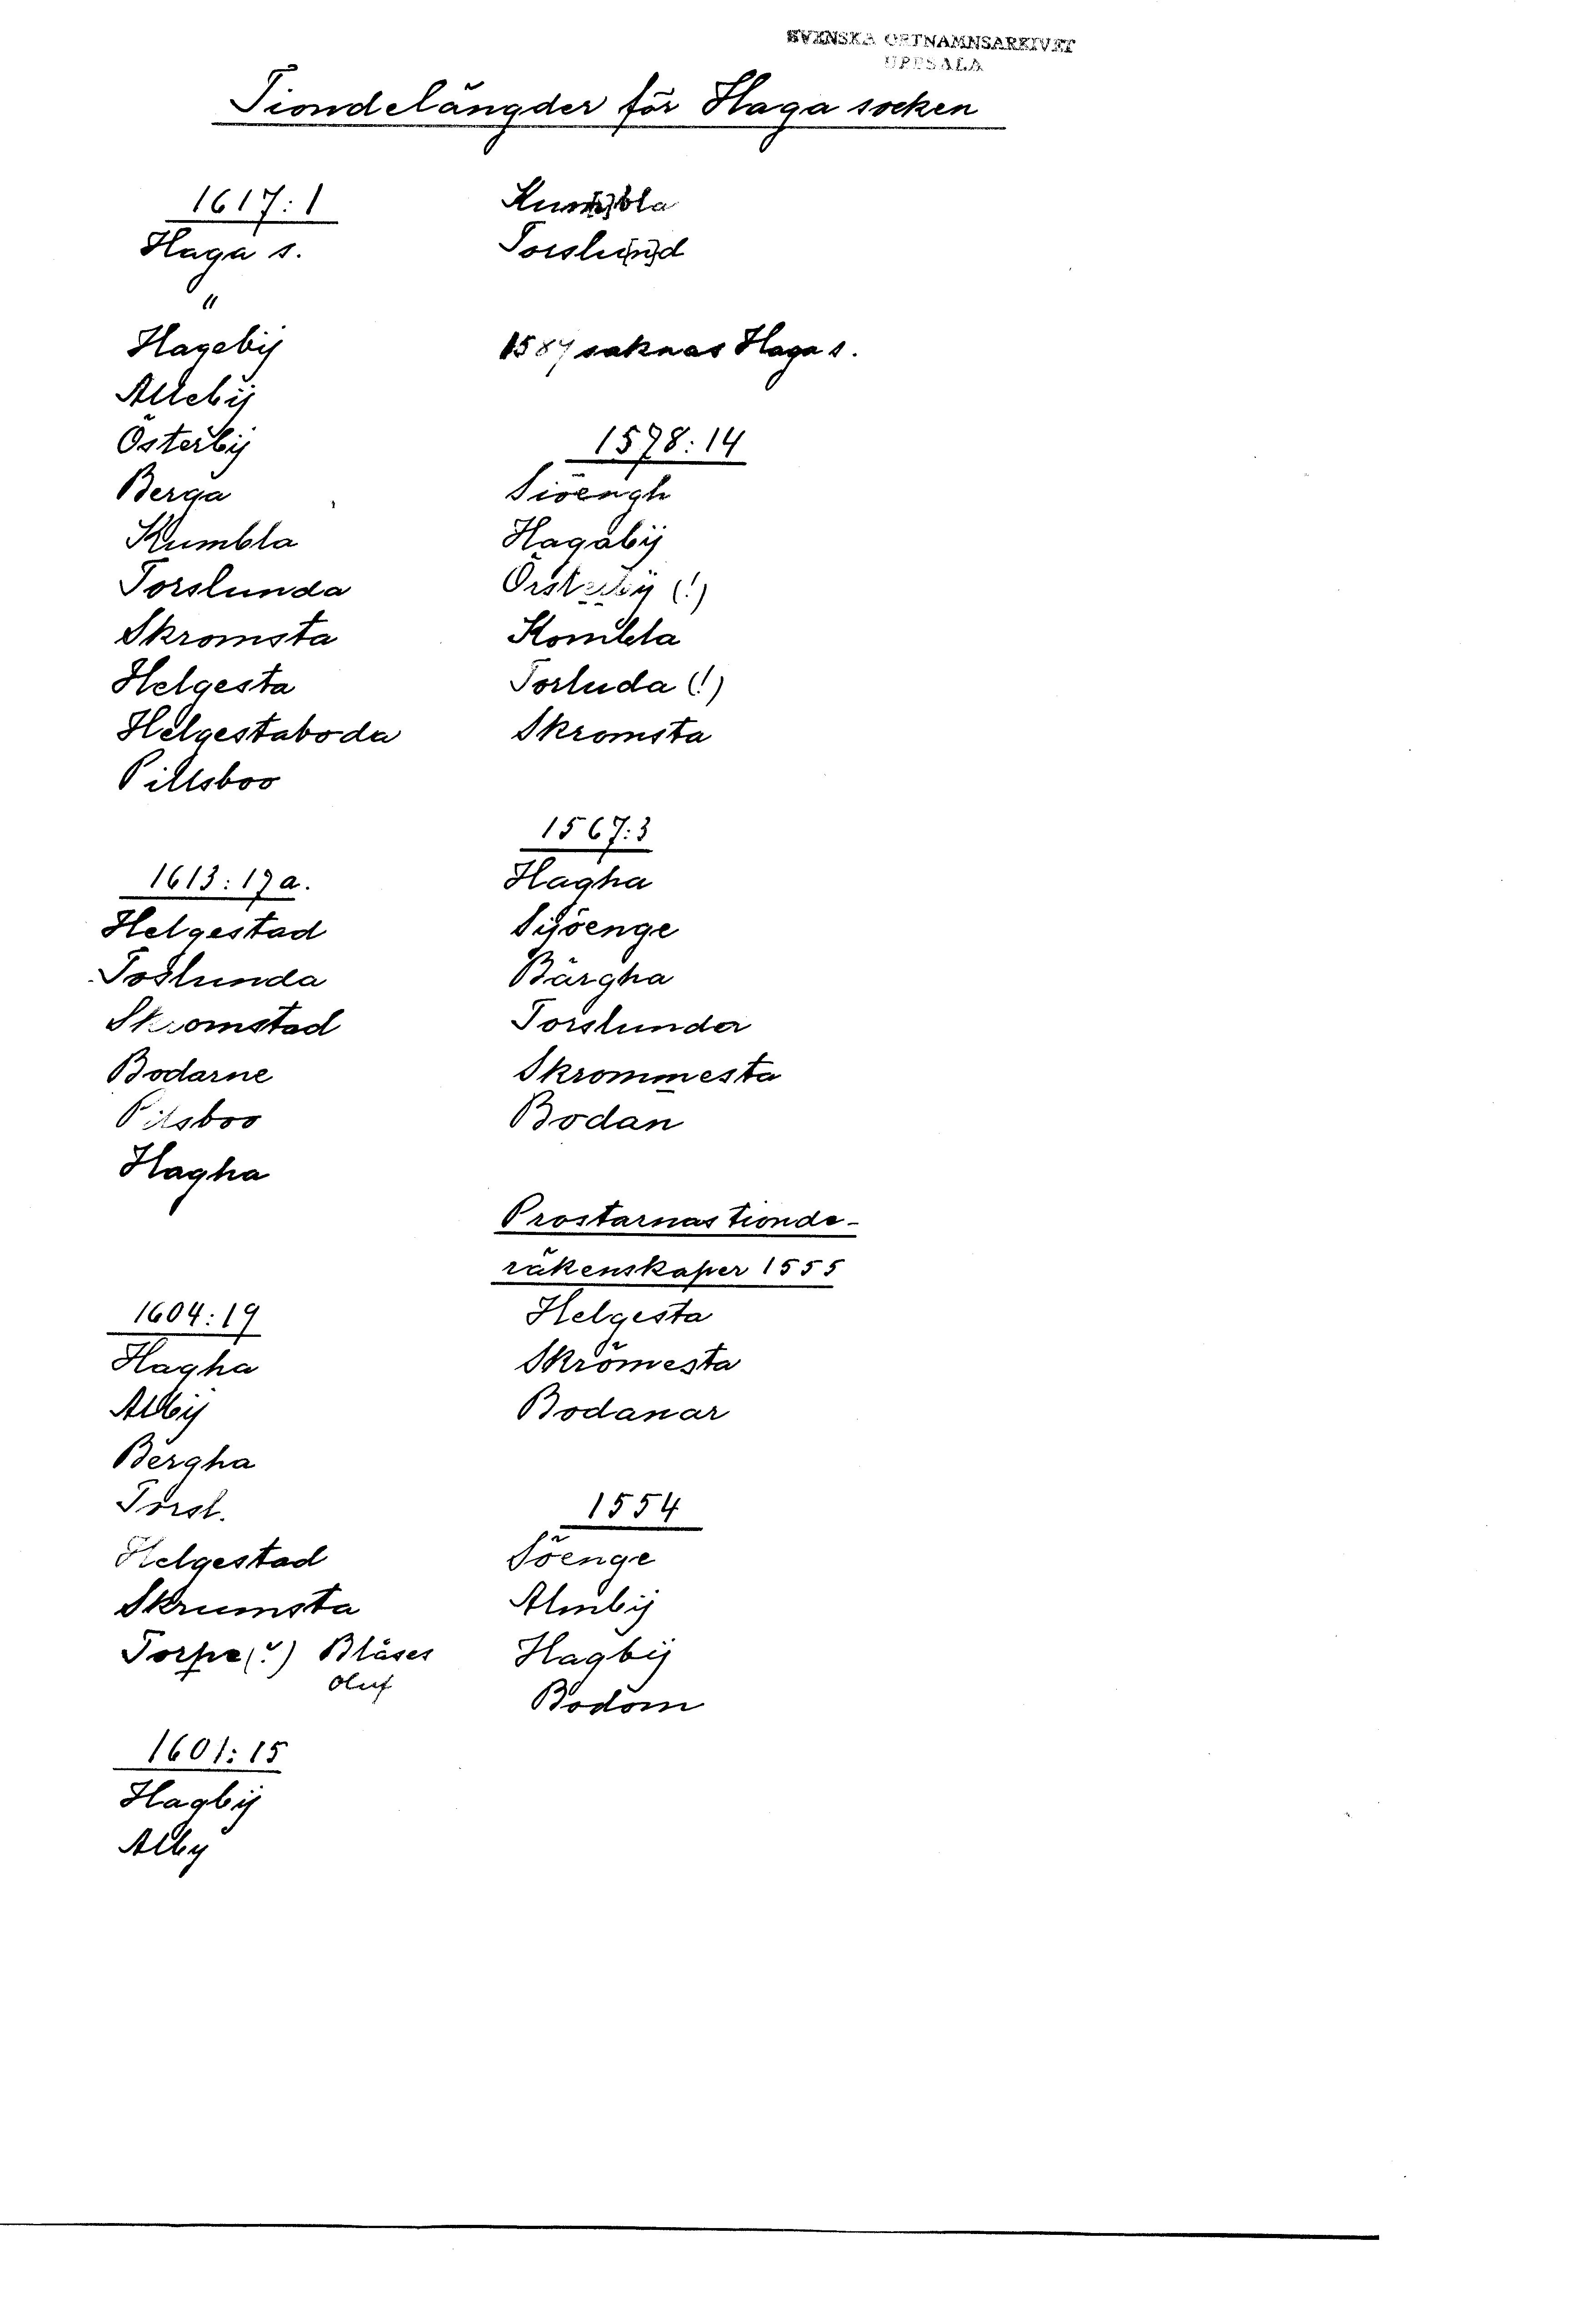 SVENSKA ORTNAMNSARKIVET
UPPSALA
Tiondelängder för Haga socken
1617:1
Haga s.
"
Hagebij
Allebij
Österbij
Berga
Kumbla
Torslunda
Skromsta
Helgesta
Helgestaboda
Pillsboo
1613:17a.
Helgestad
Toslunda
Skromstad
Bodarne
Pilsboo
Hagha
1604:19
Hagha
Alby
Bergha
Torsl.
Helgestad
Skrumsta
Torpe(?) Blåses
Oluf
1601:15
Hagbij
Alby
Kum[m]bla
Torslu[n]d
1587 saknas Haga s.
1578:14
Siöengh
Hagabij
Örstebij (!)
Kombla
Torluda (!)
Skromsta
1567:3
Hagha
Sijöenge
Bärgha
Torslunda
Skrommesta
Bodan
Prostarnas tionde-
räkenskaper 1555
Helgesta
Skrömesta
Bodanar
1554
Söenge
Almbij
Hagbij
Bodom